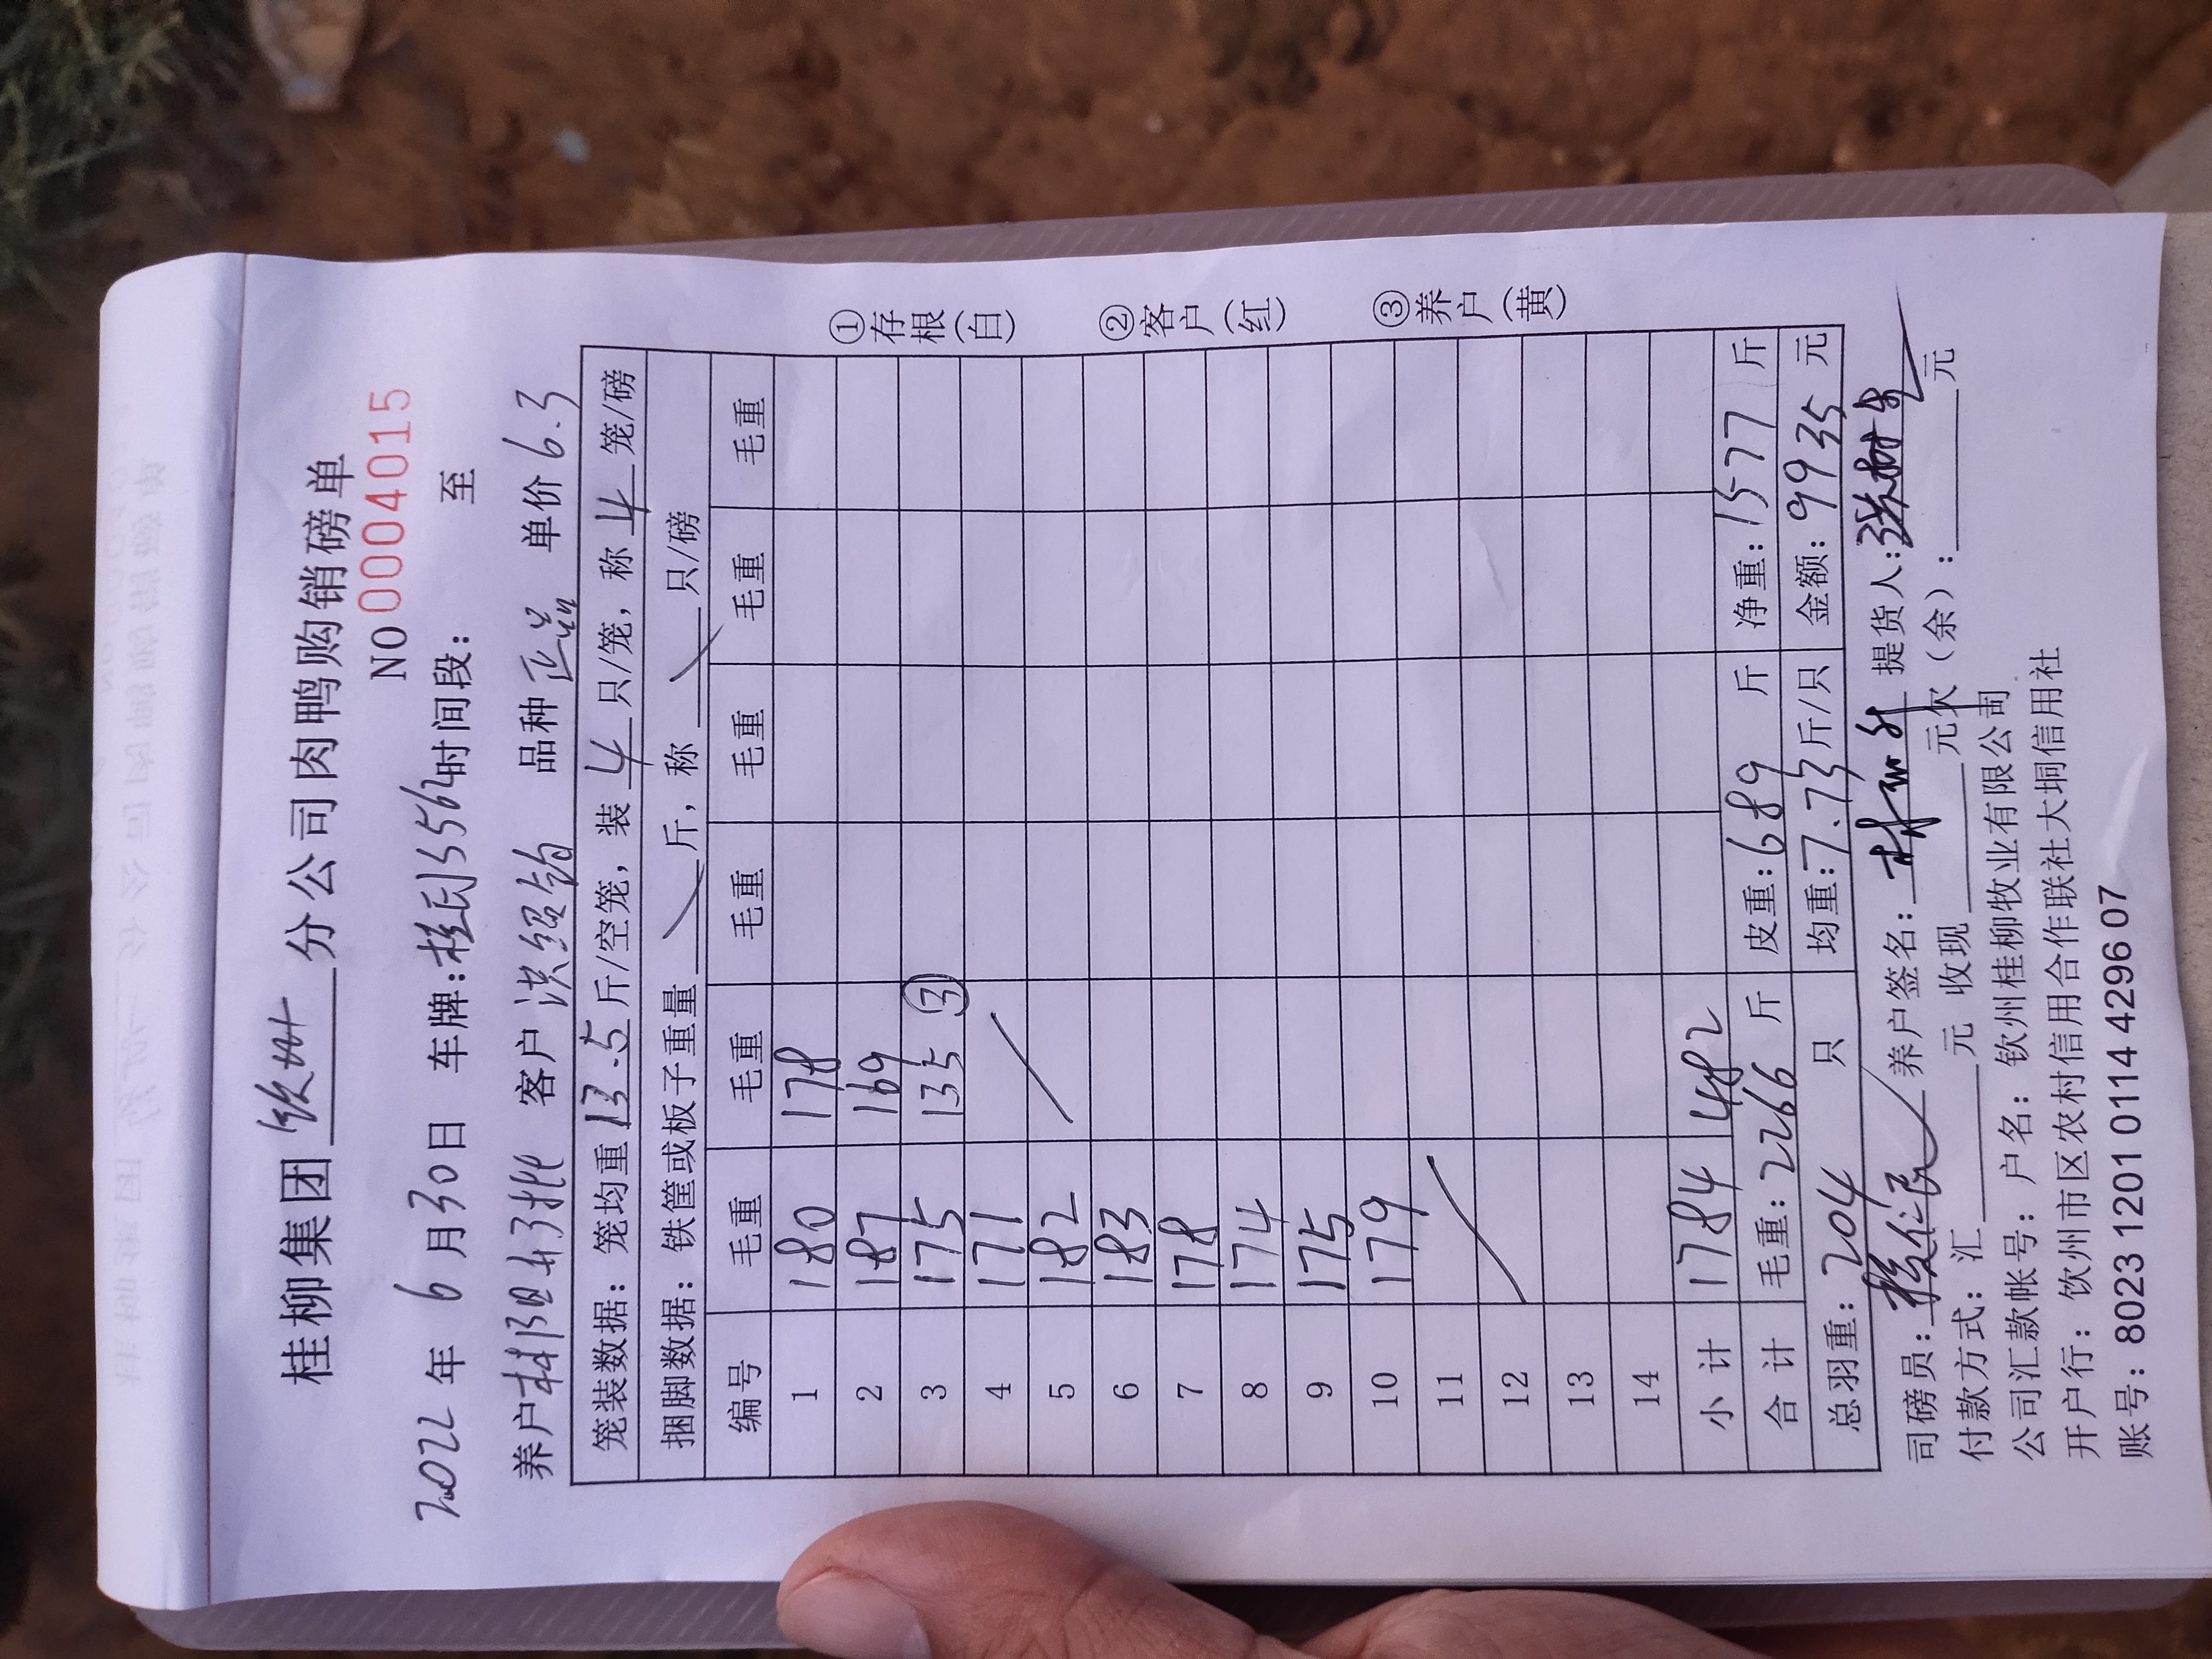 桂柳集团 钦州 分公司肉鸭购销磅单
NO 0004015
2022 年 6 月 30 日 车牌: 时间段: 至
养户 客户 洪绍钧 品种 正品 单价 6.3
笼装数据：笼均重 13.5 斤/空笼，装 4 只/笼，称 4 笼/磅
捆脚数据：铁筐或板子重量 斤，称 只/磅
编号 毛重 毛重 毛重 毛重 毛重 毛重
1 180 178
2 187 169
3 175 135 ③
4 171
5 182
6 183
7 178
8 174
9 175
10 179
11
12
13
14
小 计 1784 482
合 计 毛重: 2266 斤 皮重: 689 斤 净重: 1577 斤
总羽重: 204 只 均重: 7.73 斤/只 金额: 9935 元
司磅员: 养户签名: 提货人:
付款方式: 汇 元 收现 元欠（余）: 元
公司汇款帐号：户名：钦州桂柳牧业有限公司
开户行：钦州市区农村信用合作联社大垌信用社
账号: 8023 1201 0114 4296 07
①存根(白)
②客户(红)
③养户(黄)